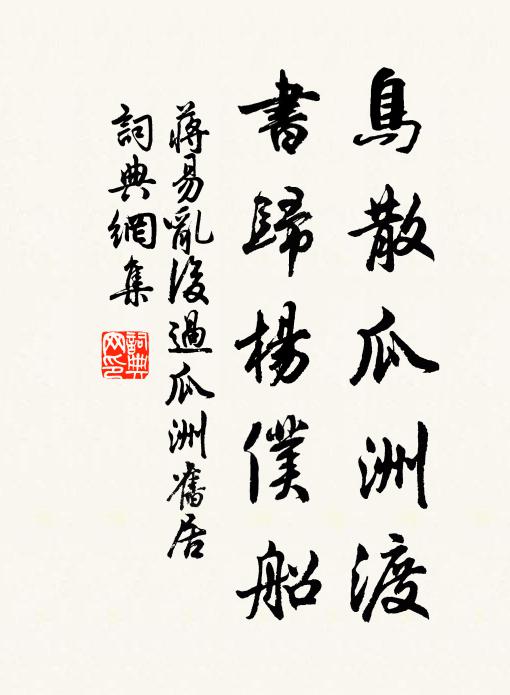 鳥散瓜洲渡
書歸楊僕船
蔣易亂後過瓜洲舊居
詞典網集
詞典网印